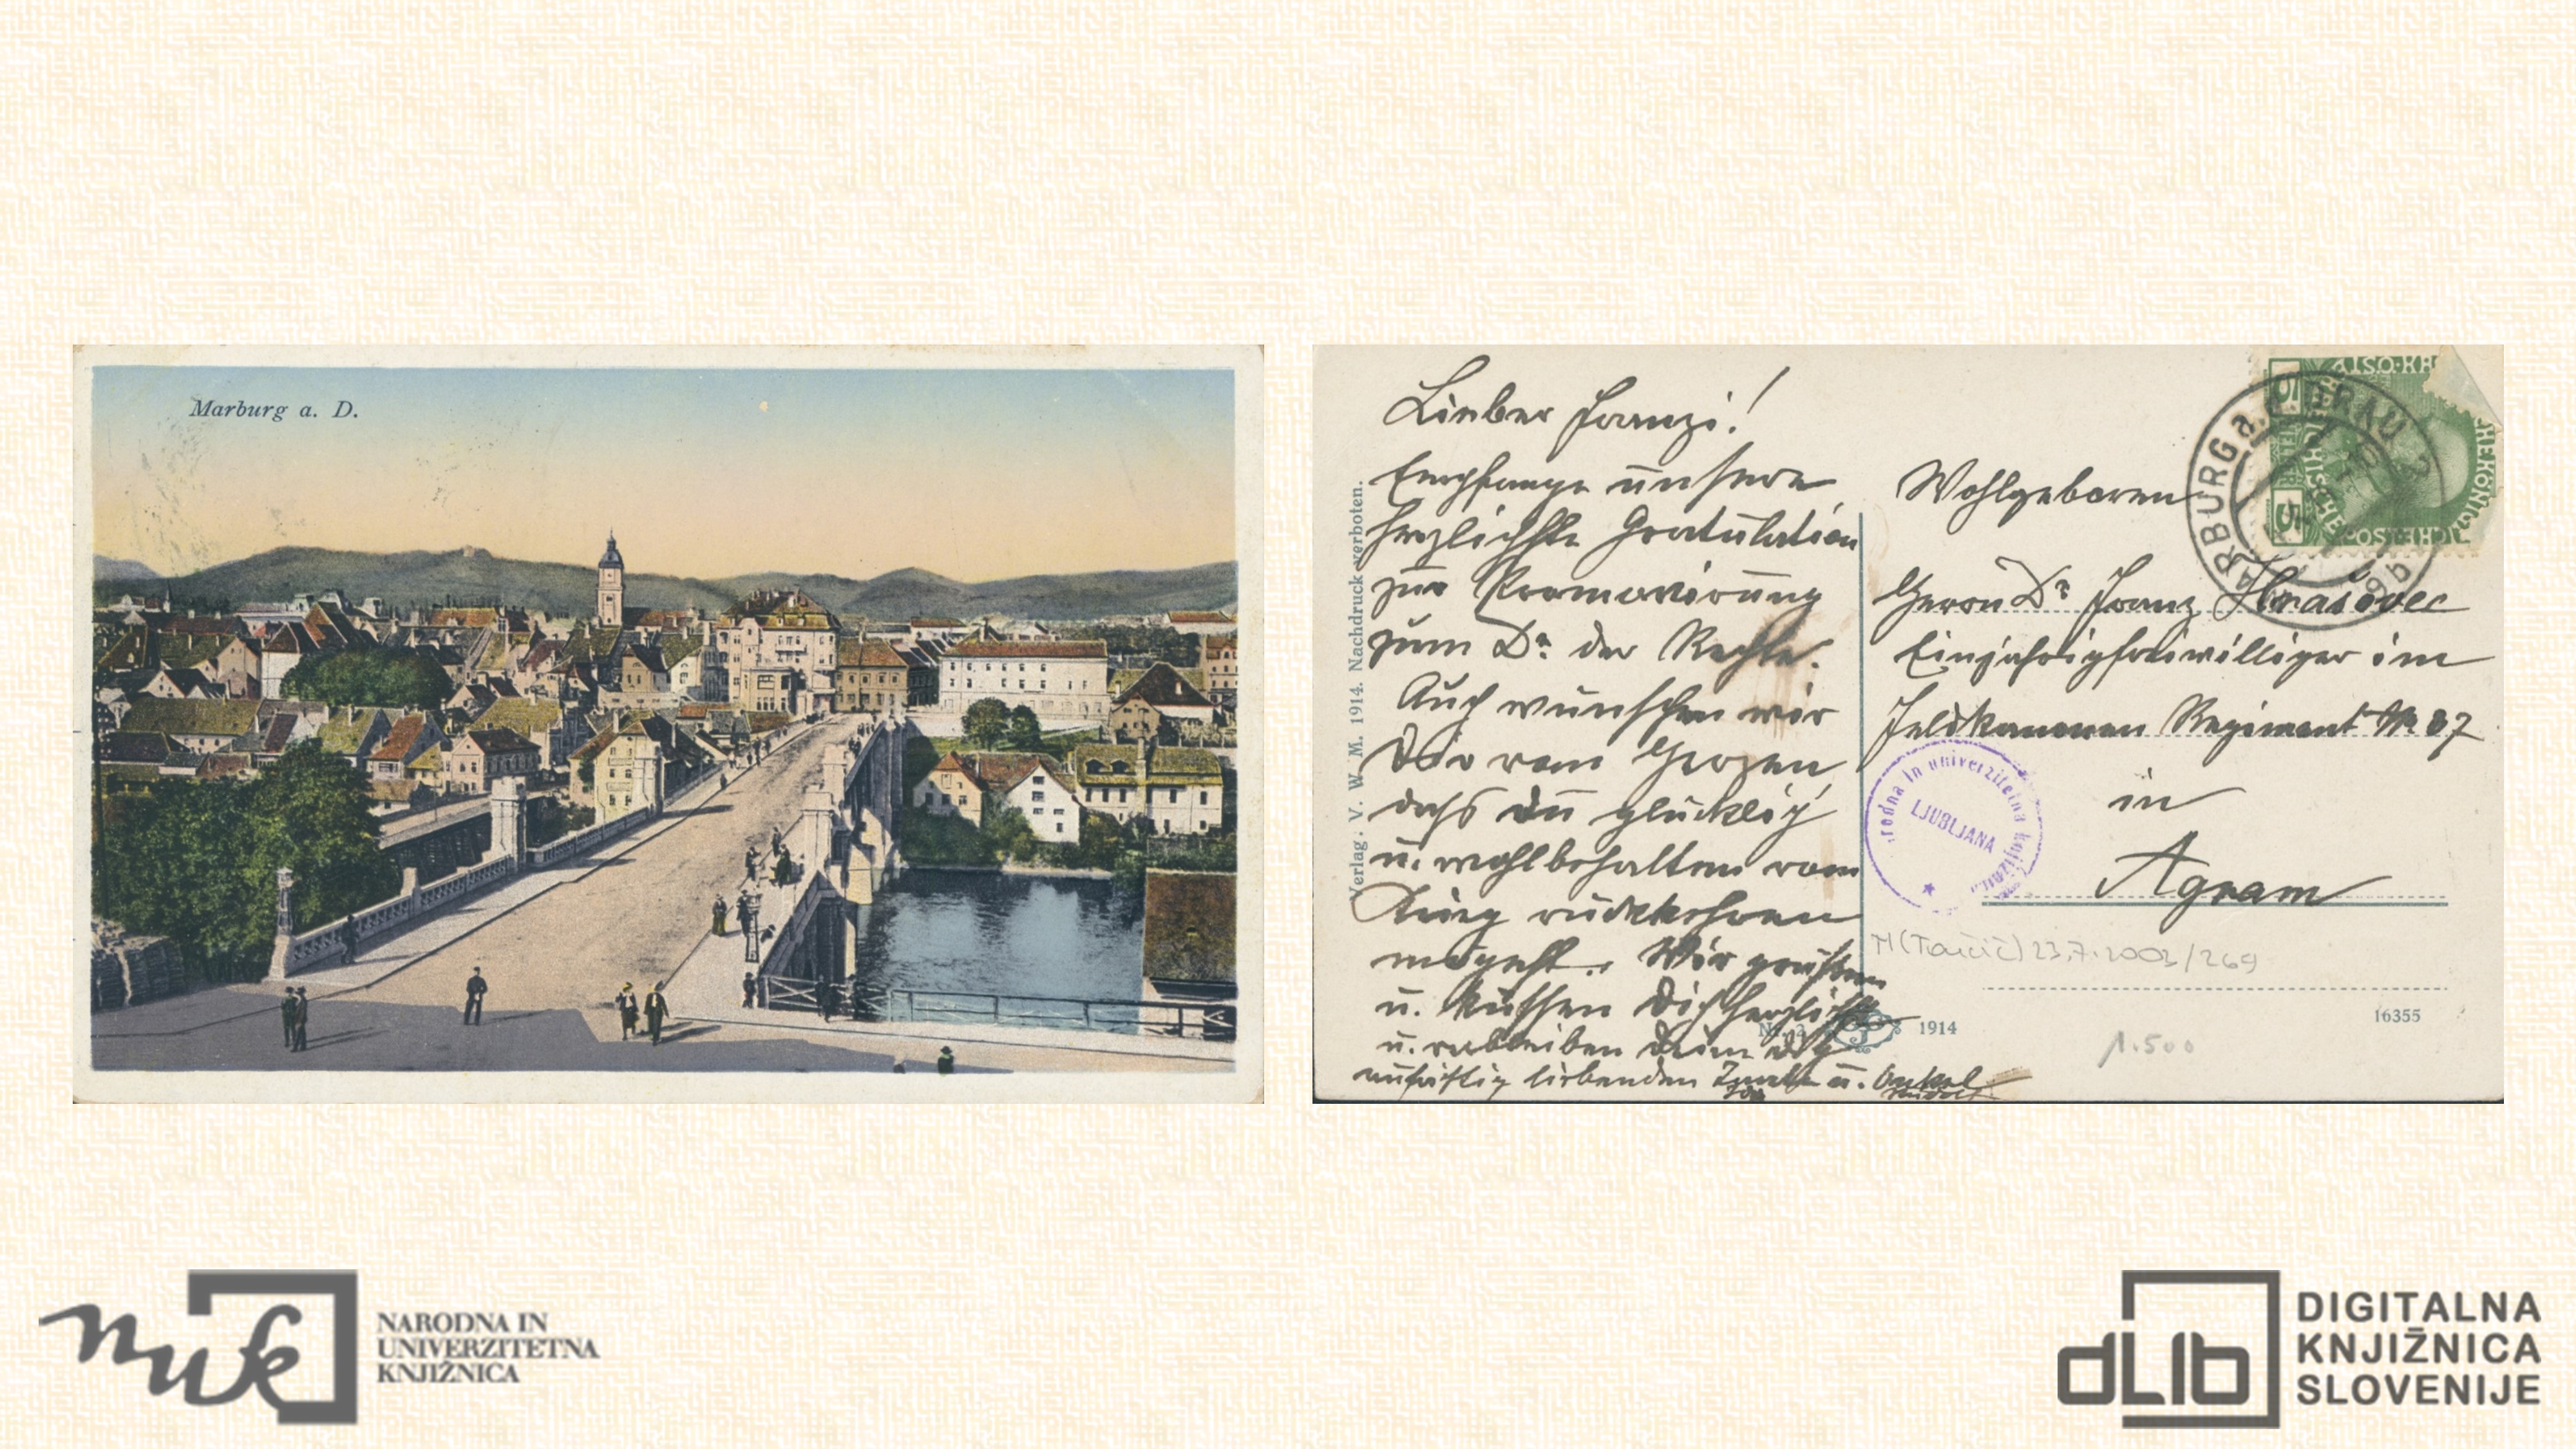 Marburg a. D.
Lieber Franzi!
Empfange unsere
herzlichste Gratulation
zur Promovirung
zum Dr. der Rechte.
Auch wünschen wir
Dir vom Herzen,
dass Du glücklich
u. wohlbehalten vom
Krieg rückkehren
mögest. Wir grüssen
u. küssen Dich herzlich
u. verbleiben Deine Dich
aufrichtig liebenden Tante u. Onkel
Rudolf
Verlag: V. W. M. 1914. Nachdruck verboten.
Wohlgeboren
Herrn Dr Franz Hrašovec
Einjährigfreiwilliger im
Feldkanonen Regiment Nr
in
Agram
MARBURG a. DRAU
5
5
rodna in univerzitetna knjižnica
LJUBLJANA
23.7.2003/269
1914
16355
1.500
nuk
NARODNA IN
UNIVERZITETNA
KNJIŽNICA
dLib
DIGITALNA
KNJIŽNICA
SLOVENIJE